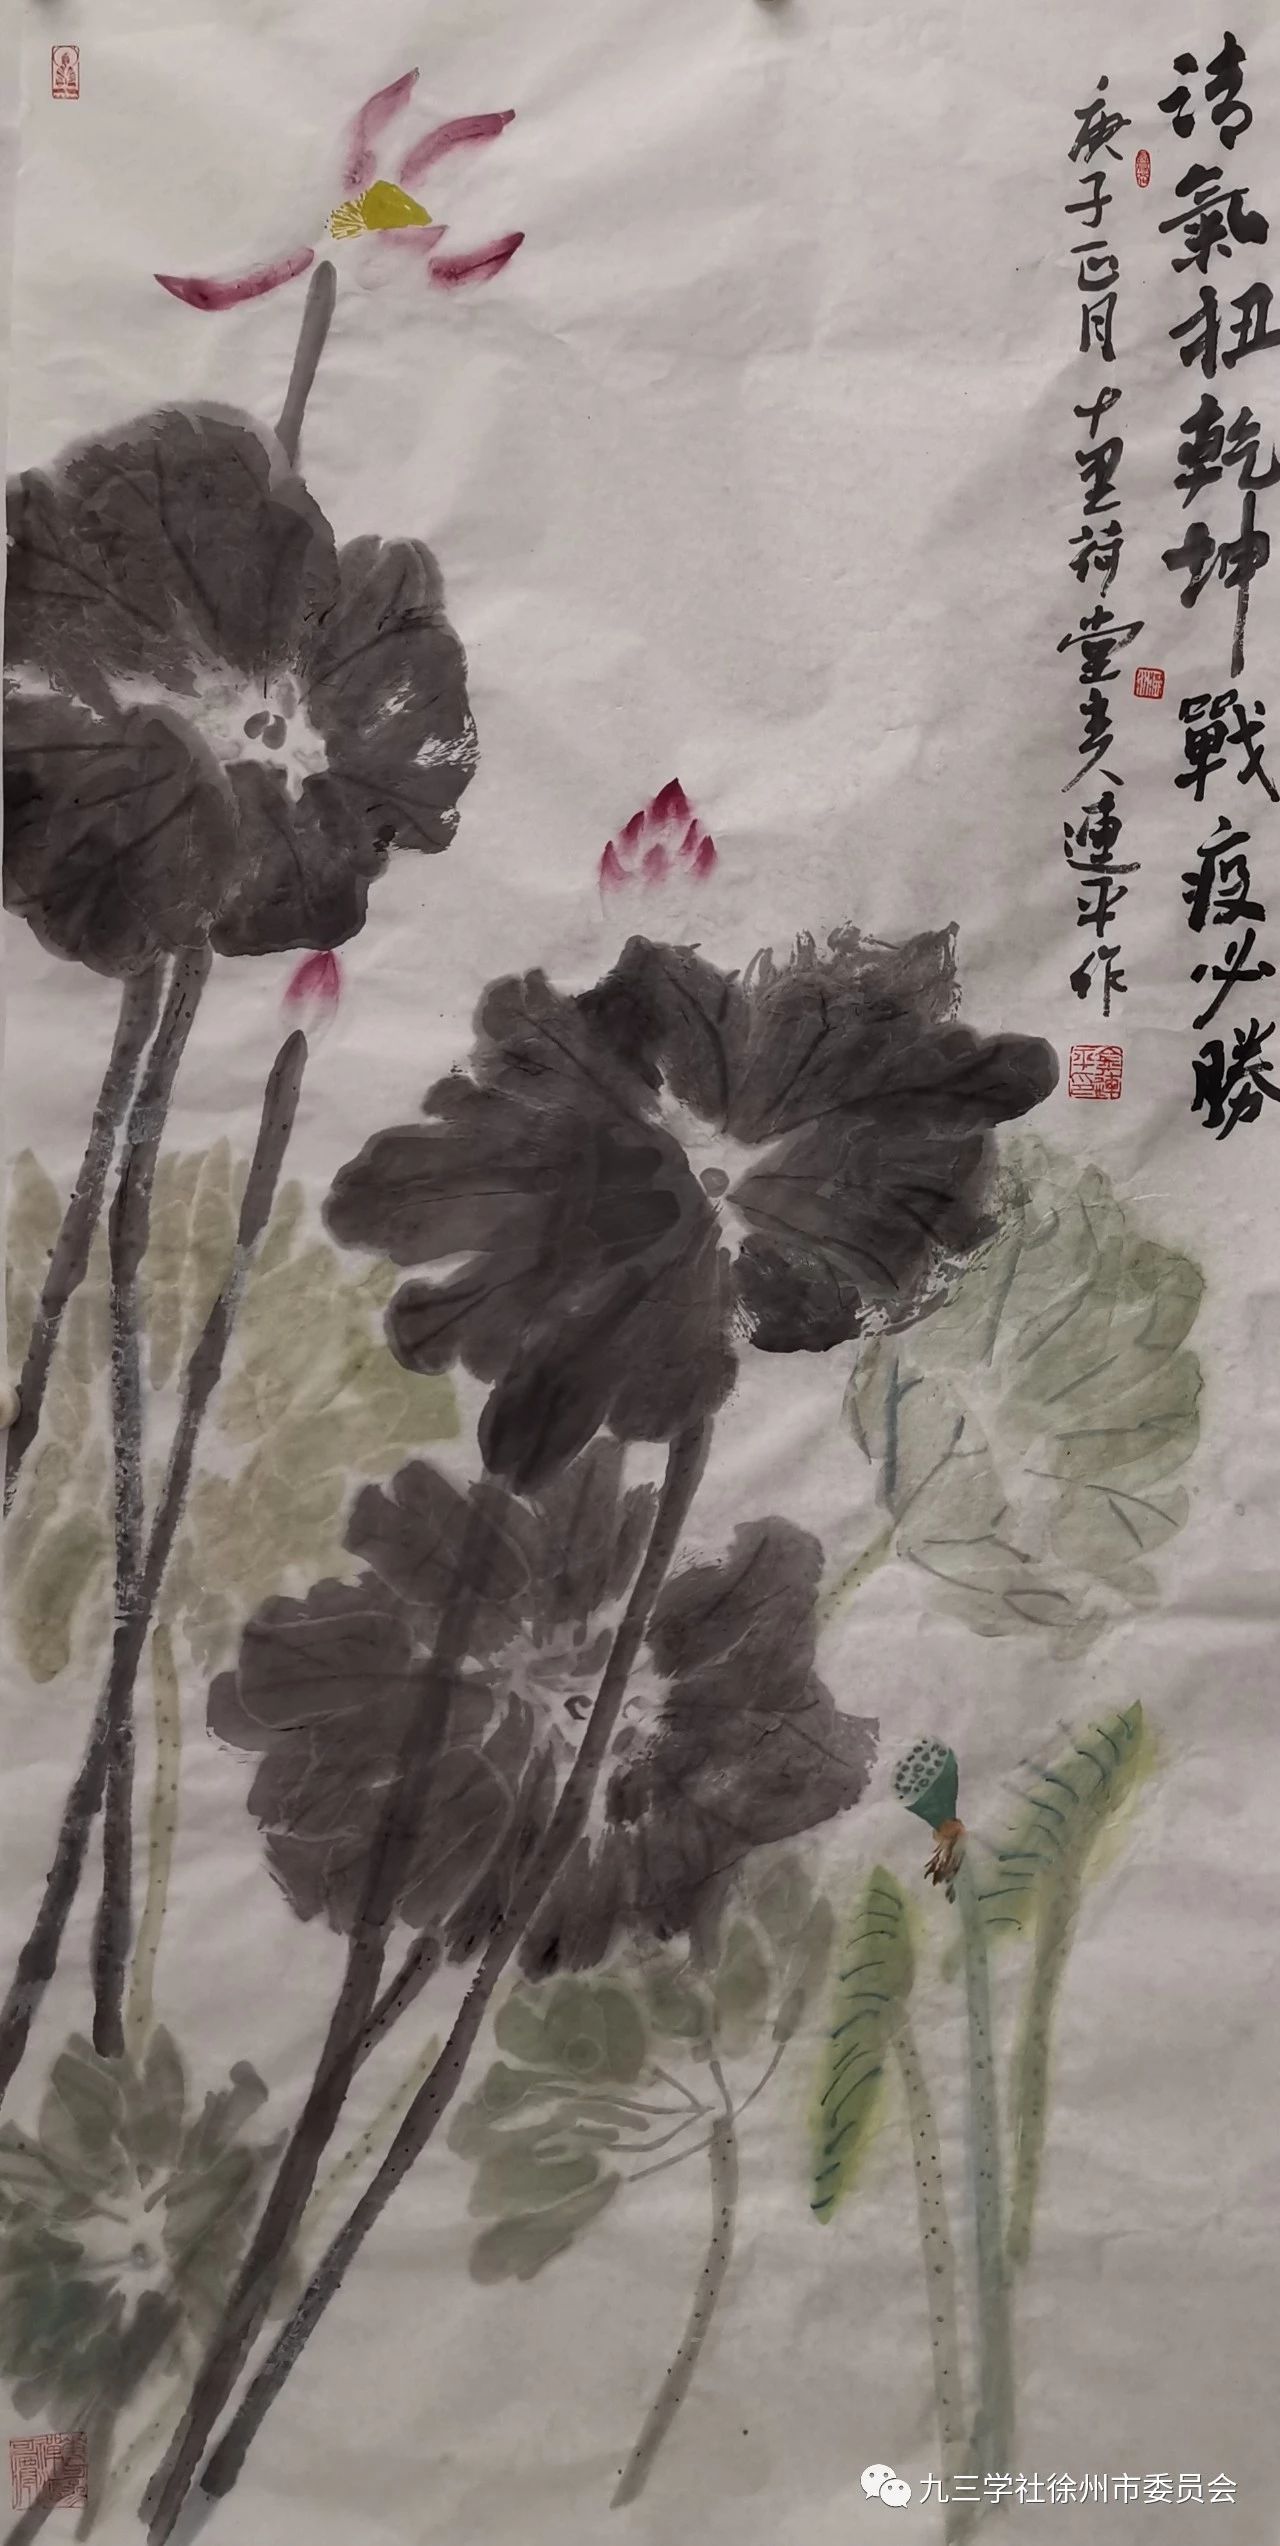 清氣扭乾坤戰疫必勝
庚子正月十里荷堂主人連平作
九三学社徐州市委员会